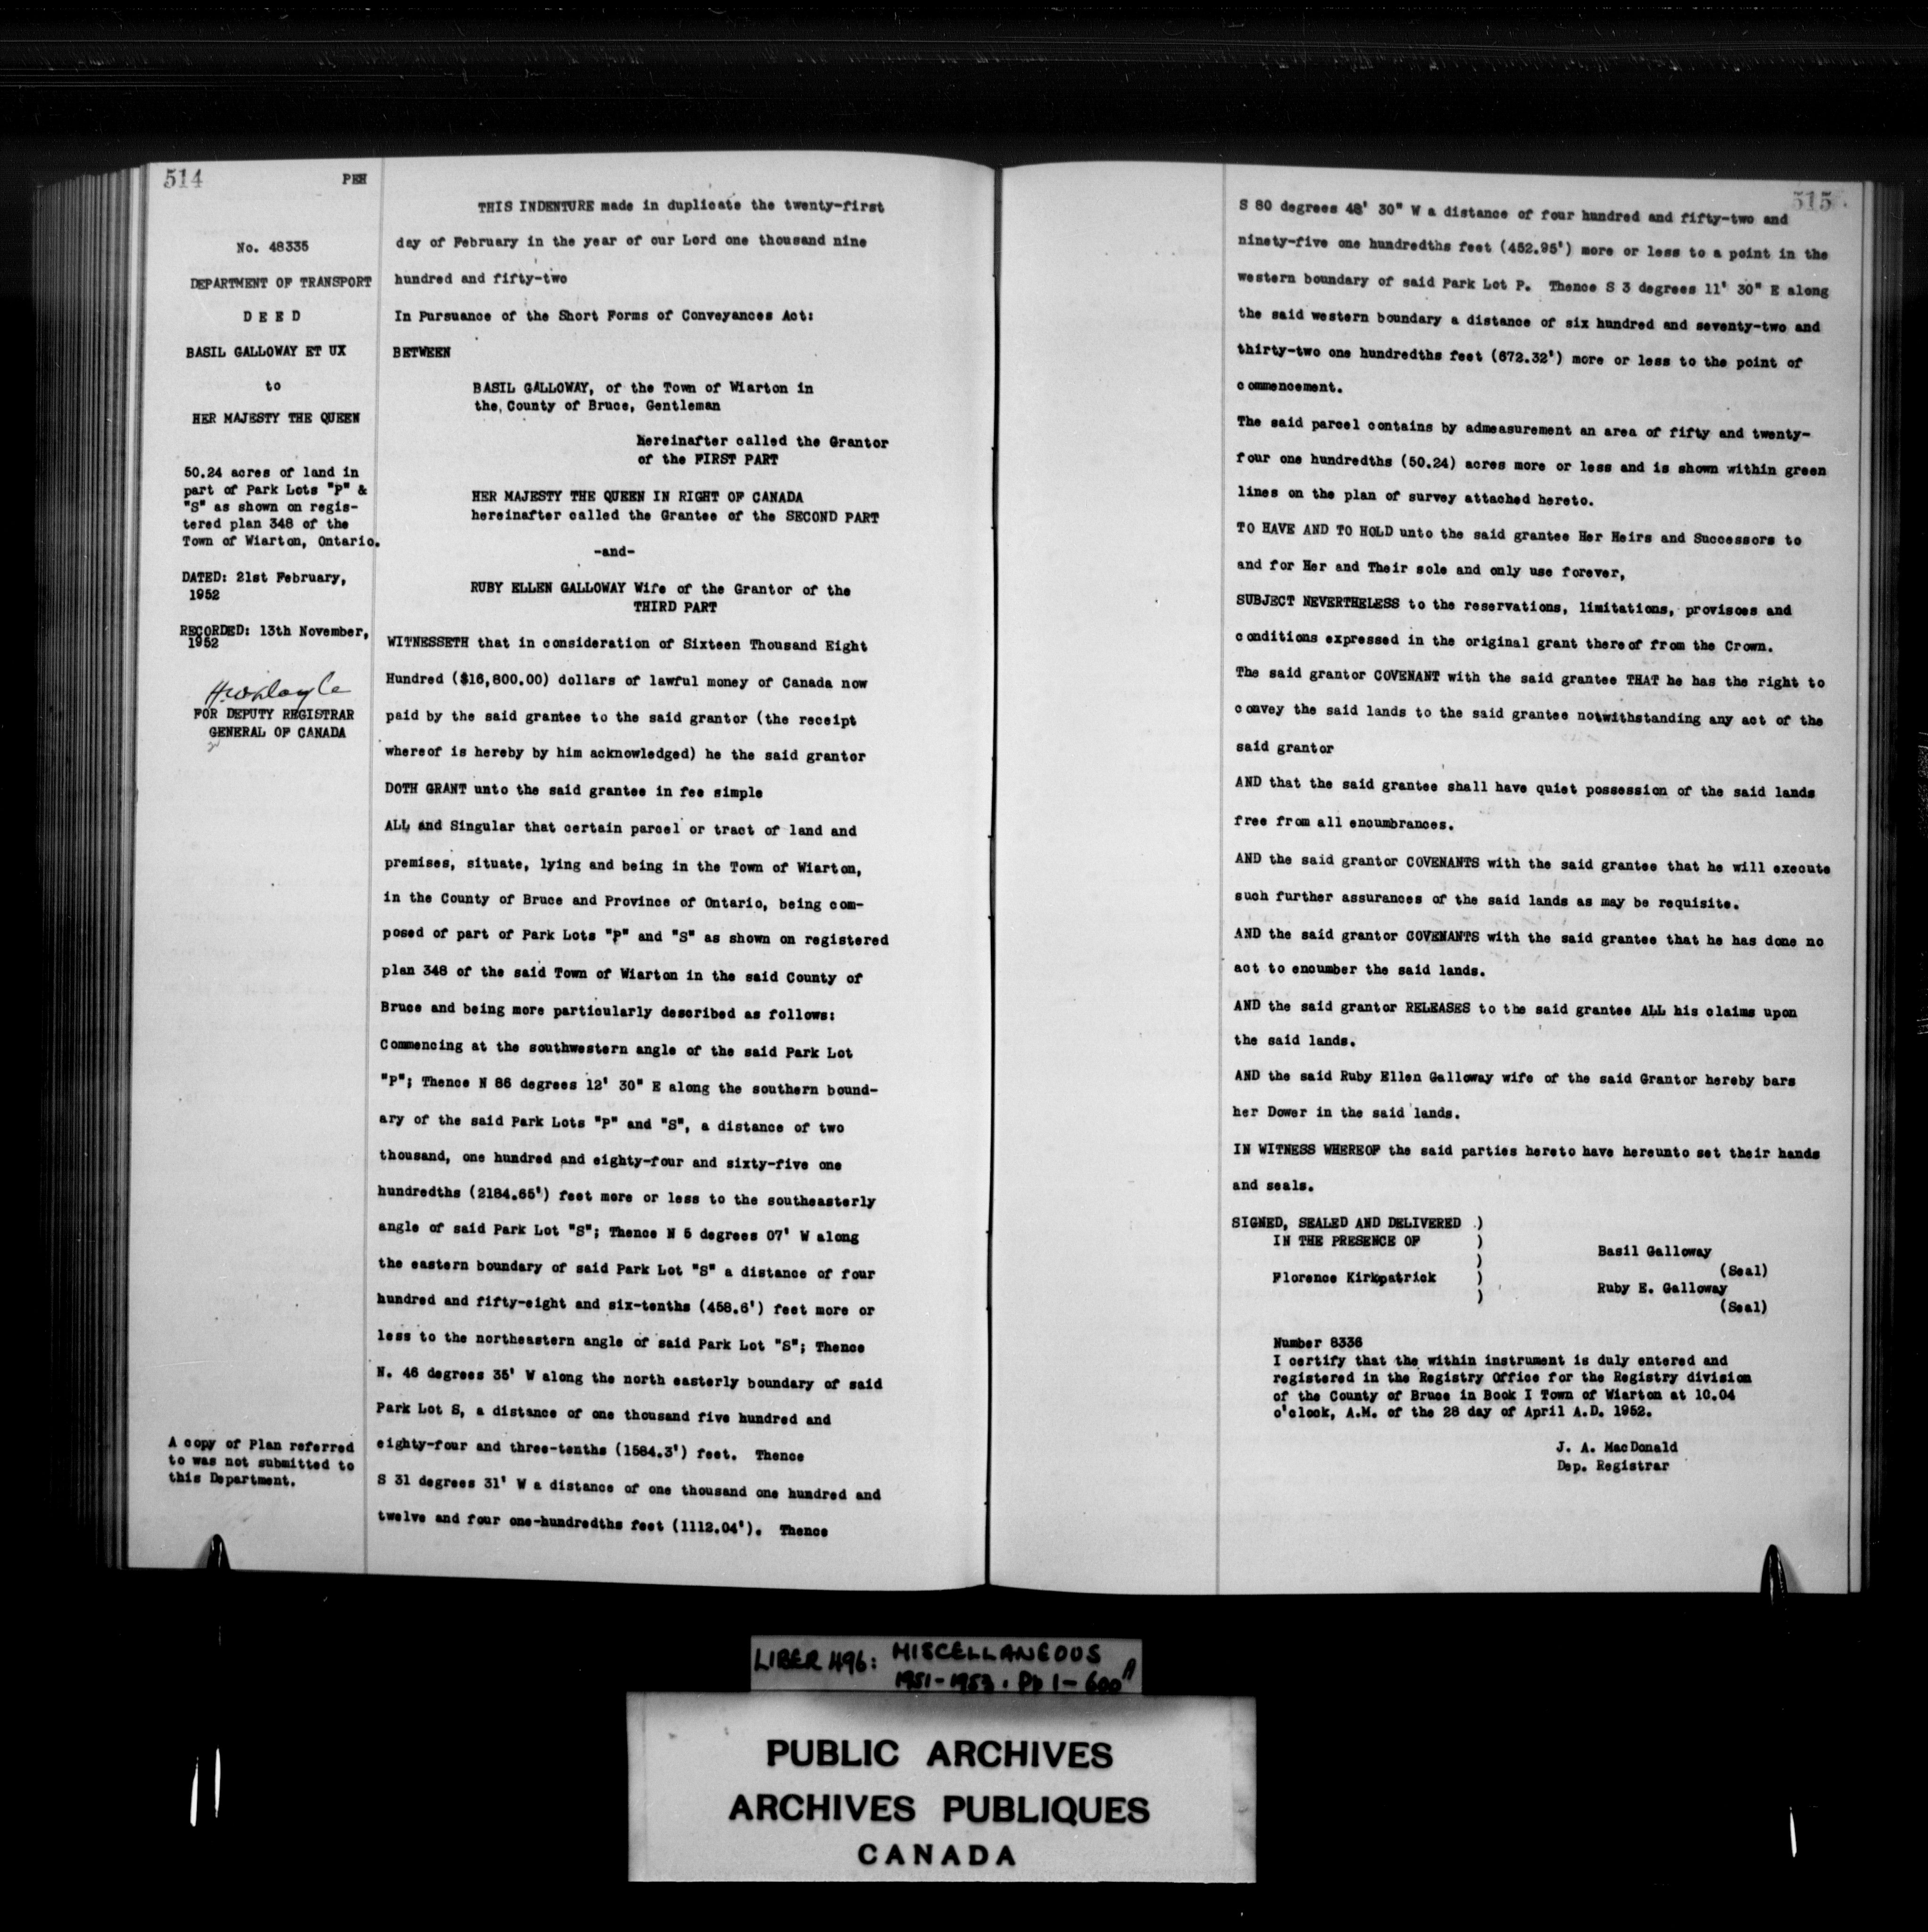 514
PEH
No. 48335
DEPARTMENT OF TRANSPORT
D E E D
BASIL GALLOWAY ET UX
to
HER MAJESTY THE QUEEN
50.24 acres of land in
part of Park Lots "P" &
"S" as shown on regis-
tered plan 348 of the
Town of Wiarton, Ontario.
DATED: 21st February,
1952
RECORDED: 13th November,
1952
FOR DEPUTY REGISTRAR
GENERAL OF CANADA
A copy of Plan referred
to was not submitted to
this Department.
THIS INDENTURE made in duplicate the twenty-first
day of February in the year of our Lord one thousand nine
hundred and fifty-two
In Pursuance of the Short Forms of Conveyances Act:
BETWEEN
BASIL GALLOWAY, of the Town of Wiarton in
the County of Bruce, Gentleman
hereinafter called the Grantor
of the FIRST PART
HER MAJESTY THE QUEEN IN RIGHT OF CANADA
hereinafter called the Grantee of the SECOND PART
-and-
RUBY ELLEN GALLOWAY Wife of the Grantor of the
THIRD PART
WITNESSETH that in consideration of Sixteen Thousand Eight
Hundred ($16,800.00) dollars of lawful money of Canada now
paid by the said grantee to the said grantor (the receipt
whereof is hereby by him acknowledged) he the said grantor
DOTH GRANT unto the said grantee in fee simple
ALL and Singular that certain parcel or tract of land and
premises, situate, lying and being in the Town of Wiarton,
in the County of Bruce and Province of Ontario, being com-
posed of part of Park Lots "P" and "S" as shown on registered
plan 348 of the said Town of Wiarton in the said County of
Bruce and being more particularly described as follows:
Commencing at the southwestern angle of the said Park Lot
"P"; Thence N 86 degrees 12' 30" E along the southern bound-
ary of the said Park Lots "P" and "S", a distance of two
thousand, one hundred and eighty-four and sixty-five one
hundredths (2184.65') feet more or less to the southeasterly
angle of said Park Lot "S"; Thence N 5 degrees 07' W along
the eastern boundary of said Park Lot "S" a distance of four
hundred and fifty-eight and six-tenths (458.6') feet more or
less to the northeastern angle of said Park Lot "S"; Thence
N. 46 degrees 35' W along the north easterly boundary of said
Park Lot S, a distance of one thousand five hundred and
eighty-four and three-tenths (1584.3') feet. Thence
S 31 degrees 31' W a distance of one thousand one hundred and
twelve and four one-hundredths feet (1112.04'). Thence
515
S 80 degrees 48' 30" W a distance of four hundred and fifty-two and
ninety-five one hundredths feet (452.95') more or less to a point in the
western boundary of said Park Lot P. Thence S 3 degrees 11' 30" E along
the said western boundary a distance of six hundred and seventy-two and
thirty-two one hundredths feet (672.32') more or less to the point of
commencement.
The said parcel contains by admeasurement an area of fifty and twenty-
four one hundredths (50.24) acres more or less and is shown within green
lines on the plan of survey attached hereto.
TO HAVE AND TO HOLD unto the said grantee Her Heirs and Successors to
and for Her and Their sole and only use forever,
SUBJECT NEVERTHELESS to the reservations, limitations, provisoes and
conditions expressed in the original grant thereof from the Crown.
The said grantor COVENANT with the said grantee THAT he has the right to
convey the said lands to the said grantee notwithstanding any act of the
said grantor
AND that the said grantee shall have quiet possession of the said lands
free from all encumbrances.
AND the said grantor COVENANTS with the said grantee that he will execute
such further assurances of the said lands as may be requisite.
AND the said grantor COVENANTS with the said grantee that he has done no
act to encumber the said lands.
AND the said grantor RELEASES to the said grantee ALL his claims upon
the said lands.
AND the said Ruby Ellen Galloway wife of the said Grantor hereby bars
her Dower in the said lands.
IN WITNESS WHEREOF the said parties hereto have hereunto set their hands
and seals.
SIGNED, SEALED AND DELIVERED )
IN THE PRESENCE OF )
Basil Galloway
) (Seal)
Florence Kirkpatrick )
Ruby E. Galloway
) (Seal)
Number 8336
I certify that the within instrument is duly entered and
registered in the Registry Office for the Registry division
of the County of Bruce in Book I Town of Wiarton at 10.04
o'clock, A.M. of the 28 day of April A.D. 1952.
J. A. MacDonald
Dep. Registrar
LIBER 496: MISCELLANEOUS
1951-1953. Pp 1-600
PUBLIC ARCHIVES
ARCHIVES PUBLIQUES
CANADA